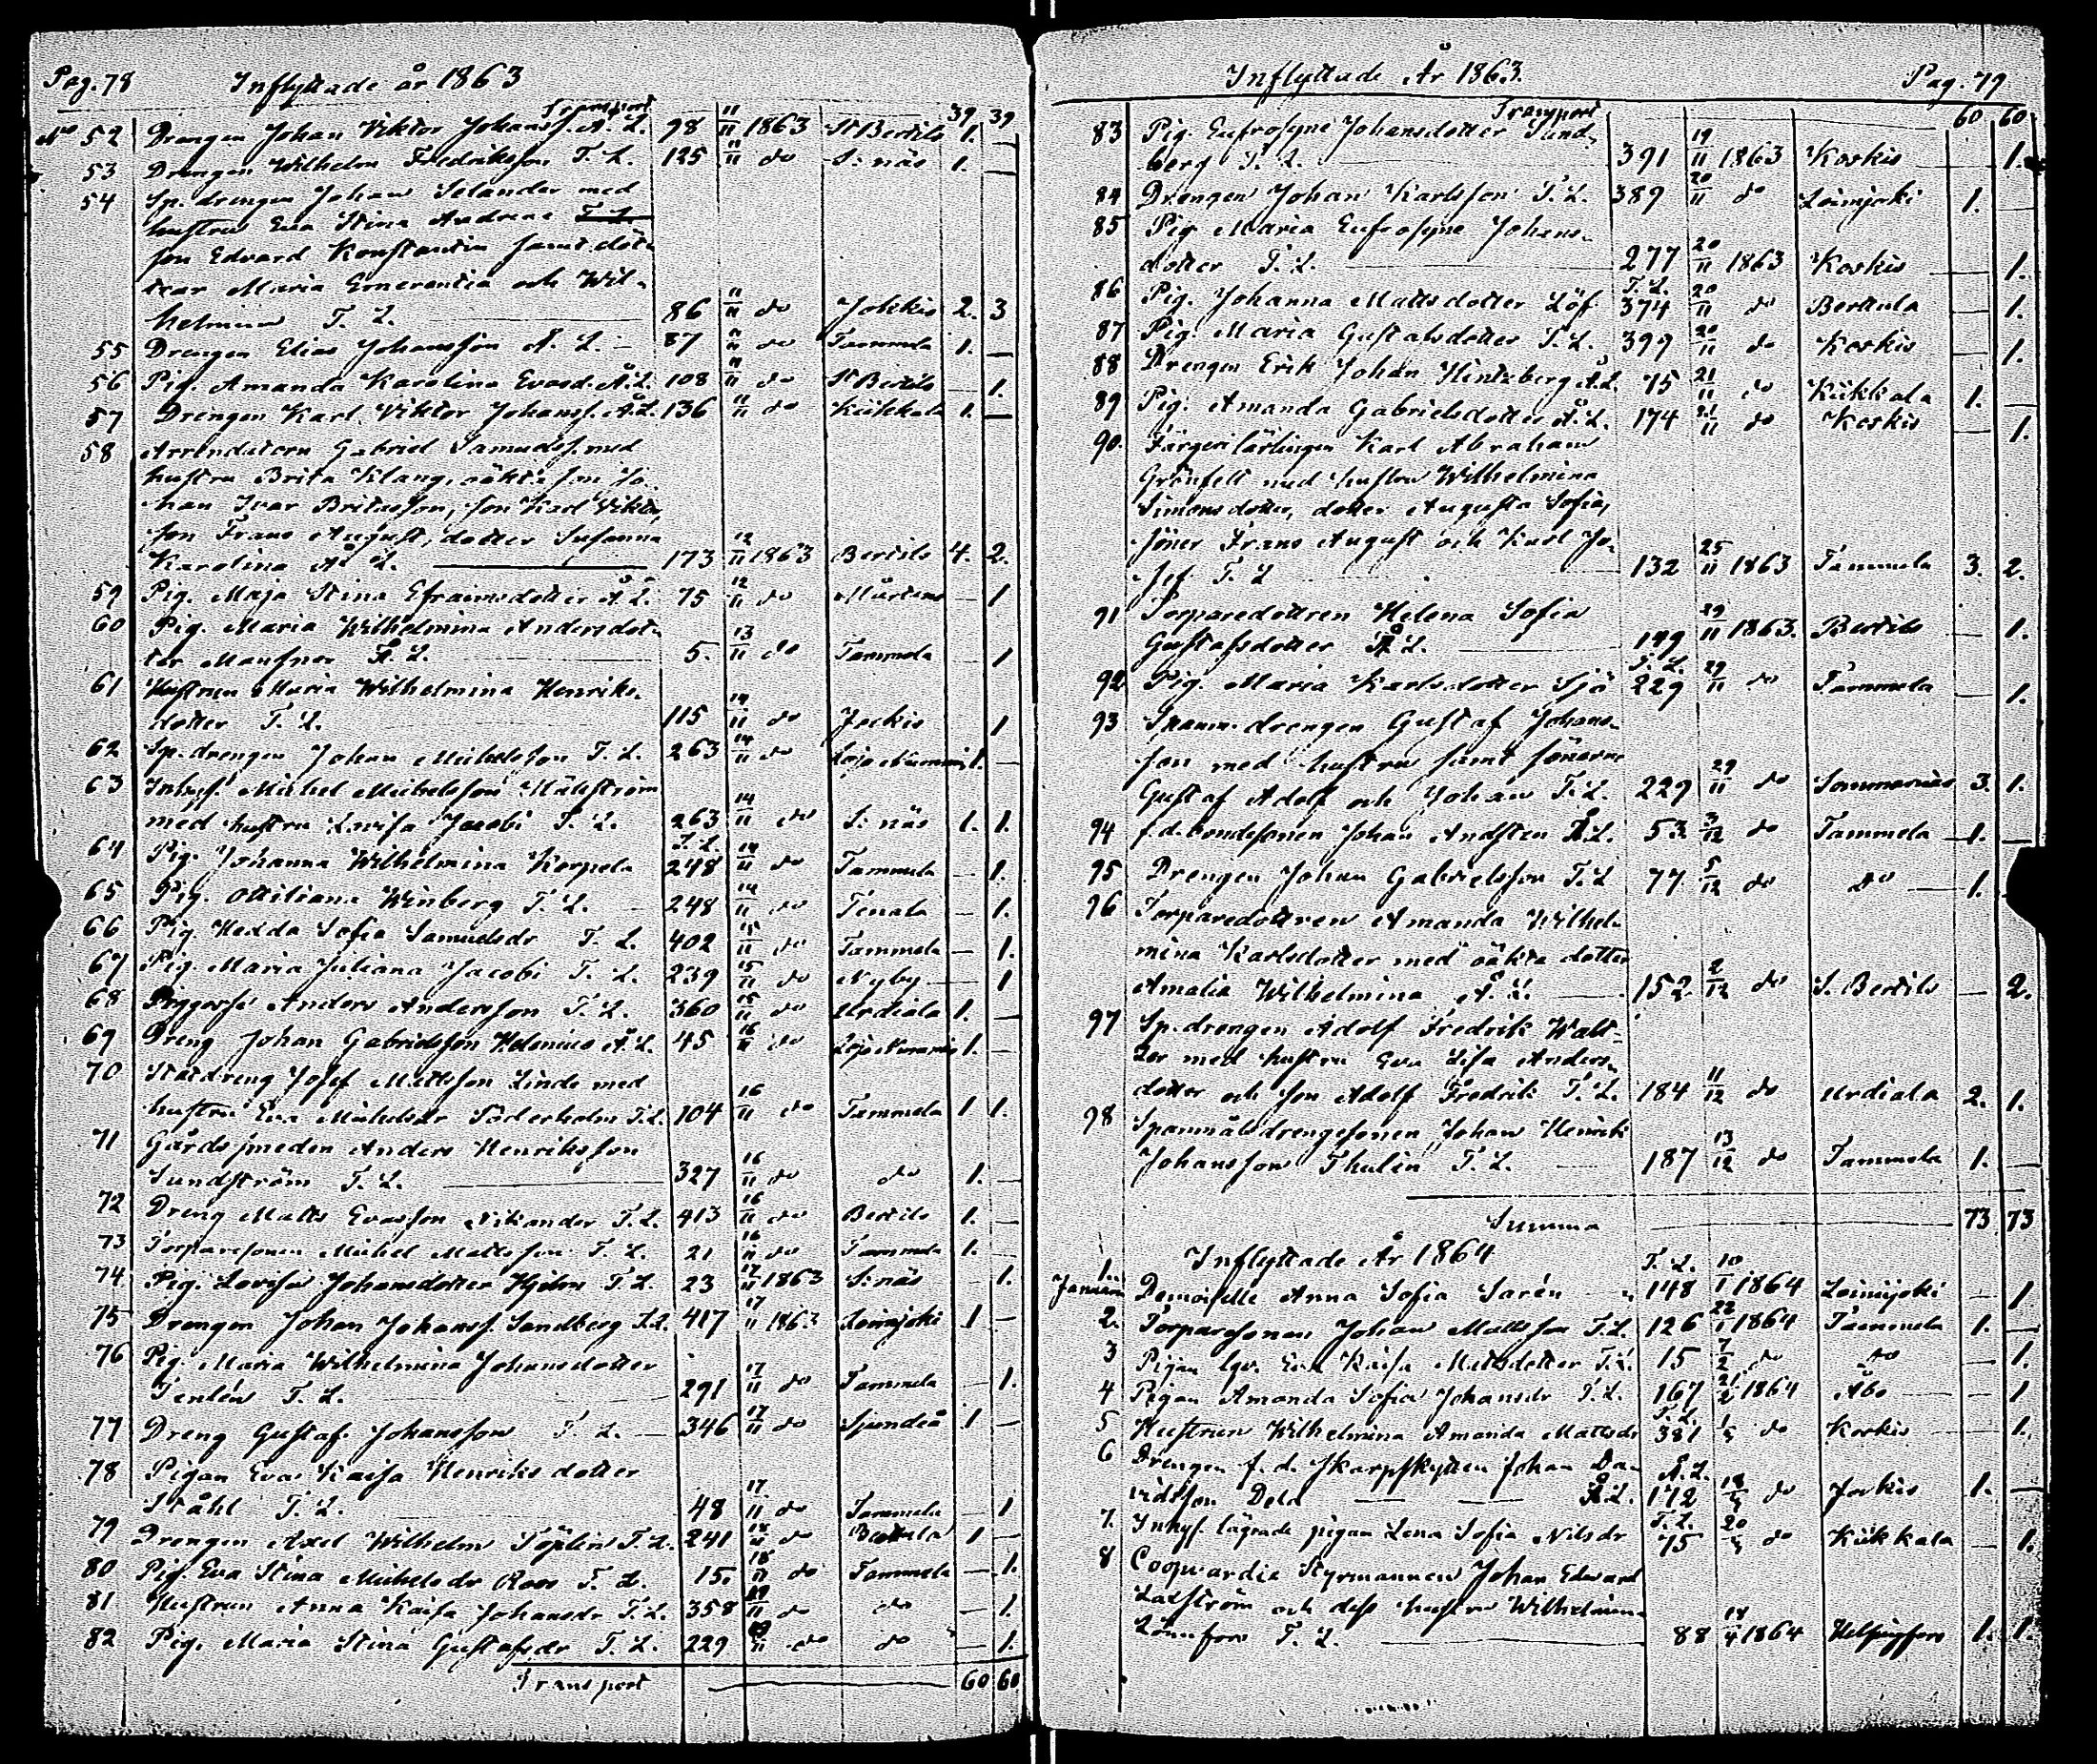 Pag. 78 Inflyttade år 1863
Transport 39 39
No 52 Drengen Johan Viktor Johanss. Å. L. 98 11/11 1863 St Bertils 1. —
53 Drengen Wilhelm Fredriksson T. L. 125 11/11 do S:näs 1. —
54 Sp. drengen Johan Selander med
hustru Eva Stina Andrsne T. L.
son Edvard Konstantin samt döt-
trar Maria Emerentia och Wil-
helmina T. L. 86 11/11 do Jokkis 2. 3
55 Drengen Elias Johansson Å. L. 87 11/11 do Tammela 1. —
56 Pig. Amanda Karolina Evasd. Å. L. 108 11/11 do St Bertils — 1.
57 Drengen Karl Viktor Johanss. Å. L. 136 11/11 do Kiikkala 1. —
58 Arrendatorn Gabriel Samuelss. med
hustru Brita Klang, oäkta son Jo-
han Ivar Britasson, son Karl Viktor,
son Frans August, dotter Susanna
Karolina Å. L. 173 12/11 1863 Bertils 4. 2.
59 Pig. Maja Stina Efraimsdotter Å. L. 75 12/11 do Mårtens — 1
60 Pig. Maria Wilhelmina Andersdot-
ter Å. L. 5. 13/11 do Tammela — 1
61 Hustrun Maria Wilhelmina Henriks-
dotter T. L. 115 14/11 do Jockis 1
62 Sp. drengen Johan Michelsson T. L. 263 14/11 do Lojo Nummis 1. —
63 Inhys. Michel Michelsson Hällström
med hustru Lovisa Jacobi T. L. 263 14/11 do S:näs 1. 1.
64 Pig. Johanna Wilhelmina Korpela T. L. 248 14/11 do Tammela — 1.
65 Pig. Ottiliana Winberg T. L. 248 14/11 do Tenala — 1.
66 Pig. Hedda Sofia Samuelsdr T. L. 402 15/11 do Tammela — 1.
67 Pig. Maria Juliana Jacobi T. L. 239 15/11 do Nyby — 1
68 Anders Andersson T. L. 360 15/11 do Urdiala 1. —
69 Dreng Johan Gabrielsson Helenius Å. L. 45 16/11 do Lojo Nummis 1. —
70 Statdreng Josef Mattsson Linde med
hustru Eva Michelsdr Söderholm T. L. 104 16/11 do Tammela 1 1.
71 Gårdssmeden Anders Henriksson
Sundström T. L. 327 16/11 do do 1. —
72 Dreng Matts Evasson Nikander T. L. 413 16/11 do Bertils 1. —
73 Torparesonen Michel Mattsson T. L. 21 16/11 do Tammela 1. —
74 Pig. Lovisa Johansdotter Hjelm T. L. 23 17/11 1863 S:näs — 1.
75 Drengen Johan Johanss. Sandberg T. L. 417 17/11 1863 Loimijoki 1 —
76 Pig. Maria Wilhelmina Johansdotter
Tenlén T. L. 291 17/11 do Tammela — 1.
77 Dreng Gustaf Johansson T. L. 346 17/11 do Sjundeå 1 —
78 Pigan Eva Kaisa Henriksdotter
Ståhl T. L. 48 17/11 do Tammela — 1
79 Drengen Axel Wilhelm Töplin T. L. 241 18/11 do Bertula 1 —
80 Pig. Eva Stina Michelsdr Roos T. L. 15. 18/11 do Tammela — 1.
81 Hustrun Anna Kaisa Johansdr T. L. 358 19/11 do do — 1.
82 Pig. Maria Stina Gustafsdr T. L. 229 19/11 do do — 1.
Transport 60 60
Inflyttade År 1863. Pag. 79
Transport 60 60
83 Pig. Eufrosyne Johansdotter Sund-
berg T. L. 391 19/11 1863 Koskis — 1.
84 Drengen Johan Karlsson T. L. 389 20/11 do Loimijoki 1. —
85 Pig. Maria Eufrosyne Johans-
dotter T. L. 277 20/11 1863 Koskis — 1.
86 Pig. Johanna Mattsdotter Löf T. L. 374 20/11 do Berttula — 1.
87 Pig. Maria Gustafsdotter T. L. 399 20/11 do Koskis — 1.
88 Drengen Erik Johan Hintzberg Å. L. 75 21/11 do Kiikkala 1. —
89 Pig. Amanda Gabrielsdotter Å. L. 174 21/11 do Koskis — 1.
90. Färgerilärlingen Karl Abraham
Grönfelt med hustru Wilhelmina
Simonsdotter, dotter Augusta Sofia,
söner Frans August och Karl Jo-
sef T. L. 132 25/11 1863 Tammela 3. 2.
91 Torparedottren Helena Sofia
Gustafsdotter Å. L. 149 29/11 1863. Bertils — 1.
92 Pig. Maria Karlsdotter Sjö T. L. 229 29/11 do Tammela — 1.
93 Spanm. drengen Gustaf Johans-
son med hustru samt sönerne
Gustaf Adolf och Johan T. L. 229 29/11 do Sommarnäs 3. 1.
94 f. d. bondesonen Johan Andsten Å. L. 53 3/12 do Tammela 1. —
95 Drengen Johan Gabrielsson T. L. 77 5/12 do do 1. —
96 Torparedottren Amanda Wilhel-
mina Karlsdotter med oäkta dotter
Amalia Wilhelmina Å. L. 152 2/12 do S. Bertils — 2.
97 Sp. drengen Adolf Fredrik Walt-
ter med hustru Eva Lisa Anders-
dotter och son Adolf Fredrik T. L. 184 11/12 do Urdiala 2. 1.
98 Spanmålsdrengesonen Johan Henrik
Johansson Thulin T. L. 187 13/12 do Tammela 1. —
Summa 73 73
Inflyttade År 1864
Januari 1. Demoiselle Anna Sofia Sarén T. L. 148 10/1 1864 Loimijoki — 1
2. Torparesonen Johan Mattsson T. L. 126 22/1 1864 Tammela 1. —
3 Pigan lgr. Eva Kaisa Mattsdotter T. L. 15 7/2 do do — 1.
4 Pigan Amanda Sofia Johansdr T. L. 167 21/2 1864 Åbo — 1
5 Hustrun Wilhelmina Amanda Mattsdr T. L. 381 do Koskis — 1.
6 Drengen f. d. Skarpskytten Johan Da-
vidsson Deld Å. L. 172 do Jockis 1. —
7. Inhys. lägrade pigan Lena Sofia Nilsdr T. L. 75 do Kiikkala — 1.
8 Coopvardie Styrmannen Johan Edward
Laxström och dess hustru Wilhelmina
Lönnfors T. L. 88 18/4 1864 Helsingfors 1. 1.